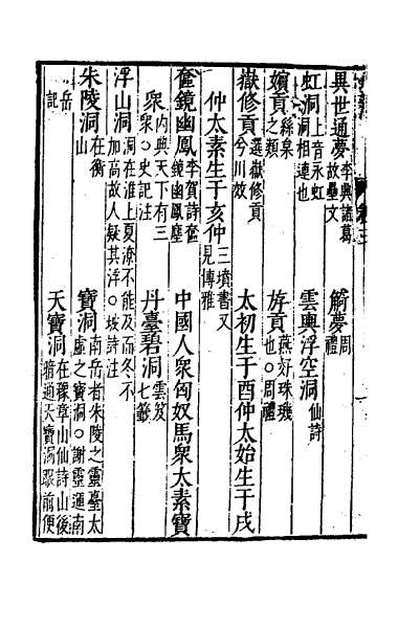 異世通夢李興諸葛故壘文 觭夢周禮
虹洞上音永虹洞相連也 雲輿浮空洞仙詩
嬪貢絲枲之類 斿貢燕好珠璣也○周禮
嶽修貢選嶽修貢兮川效
仲太素生于亥仲三墳書又見博雅 太初生于酉仲太始生于戌
奩鏡幽鳳李賀詩奩鏡幽鳳塵 中國人衆匈奴馬衆太素寶
衆内典天下有三衆○史記注 丹臺碧洞雲笈七籤
浮山洞洞在淮上夏潦不能及而冬不加高故人疑其浮○坡詩注
朱陵洞在衡山 寶洞南岳者朱陵之靈臺太虛之寶洞○謝靈運南
岳記 天寶洞在豫章山仙詩山後暗通天寶洞眼前便